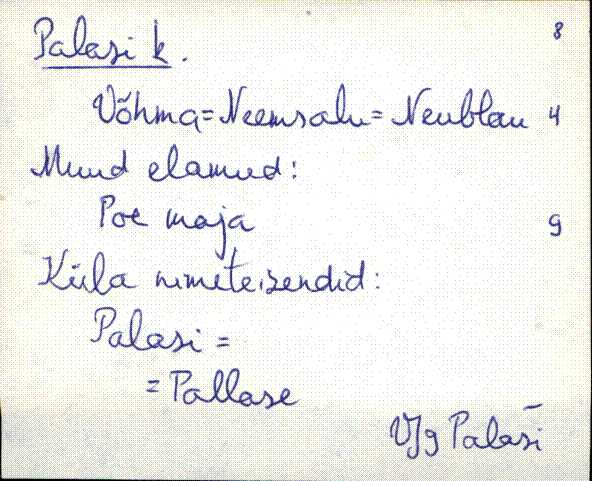 Palasi k. 8
Võhma = Neemsalu = Neublau 4
Muud elamud:
Poe maja 9
Küla nimeteisendid:
Palasi =
= Pallase
VJg Palaśi